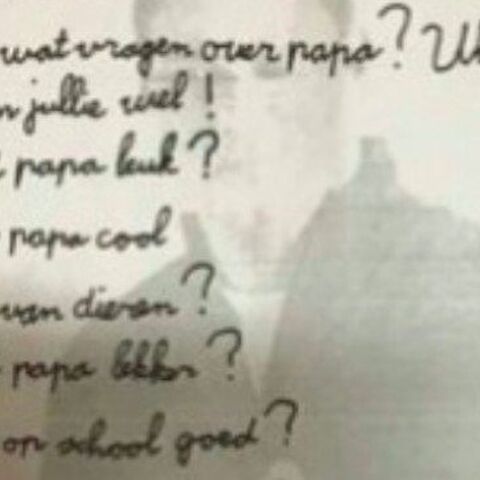 wat vragen over papa?
jullie wel!
papa leuk?
papa cool
van dieren?
papa lekker?
op school goed?